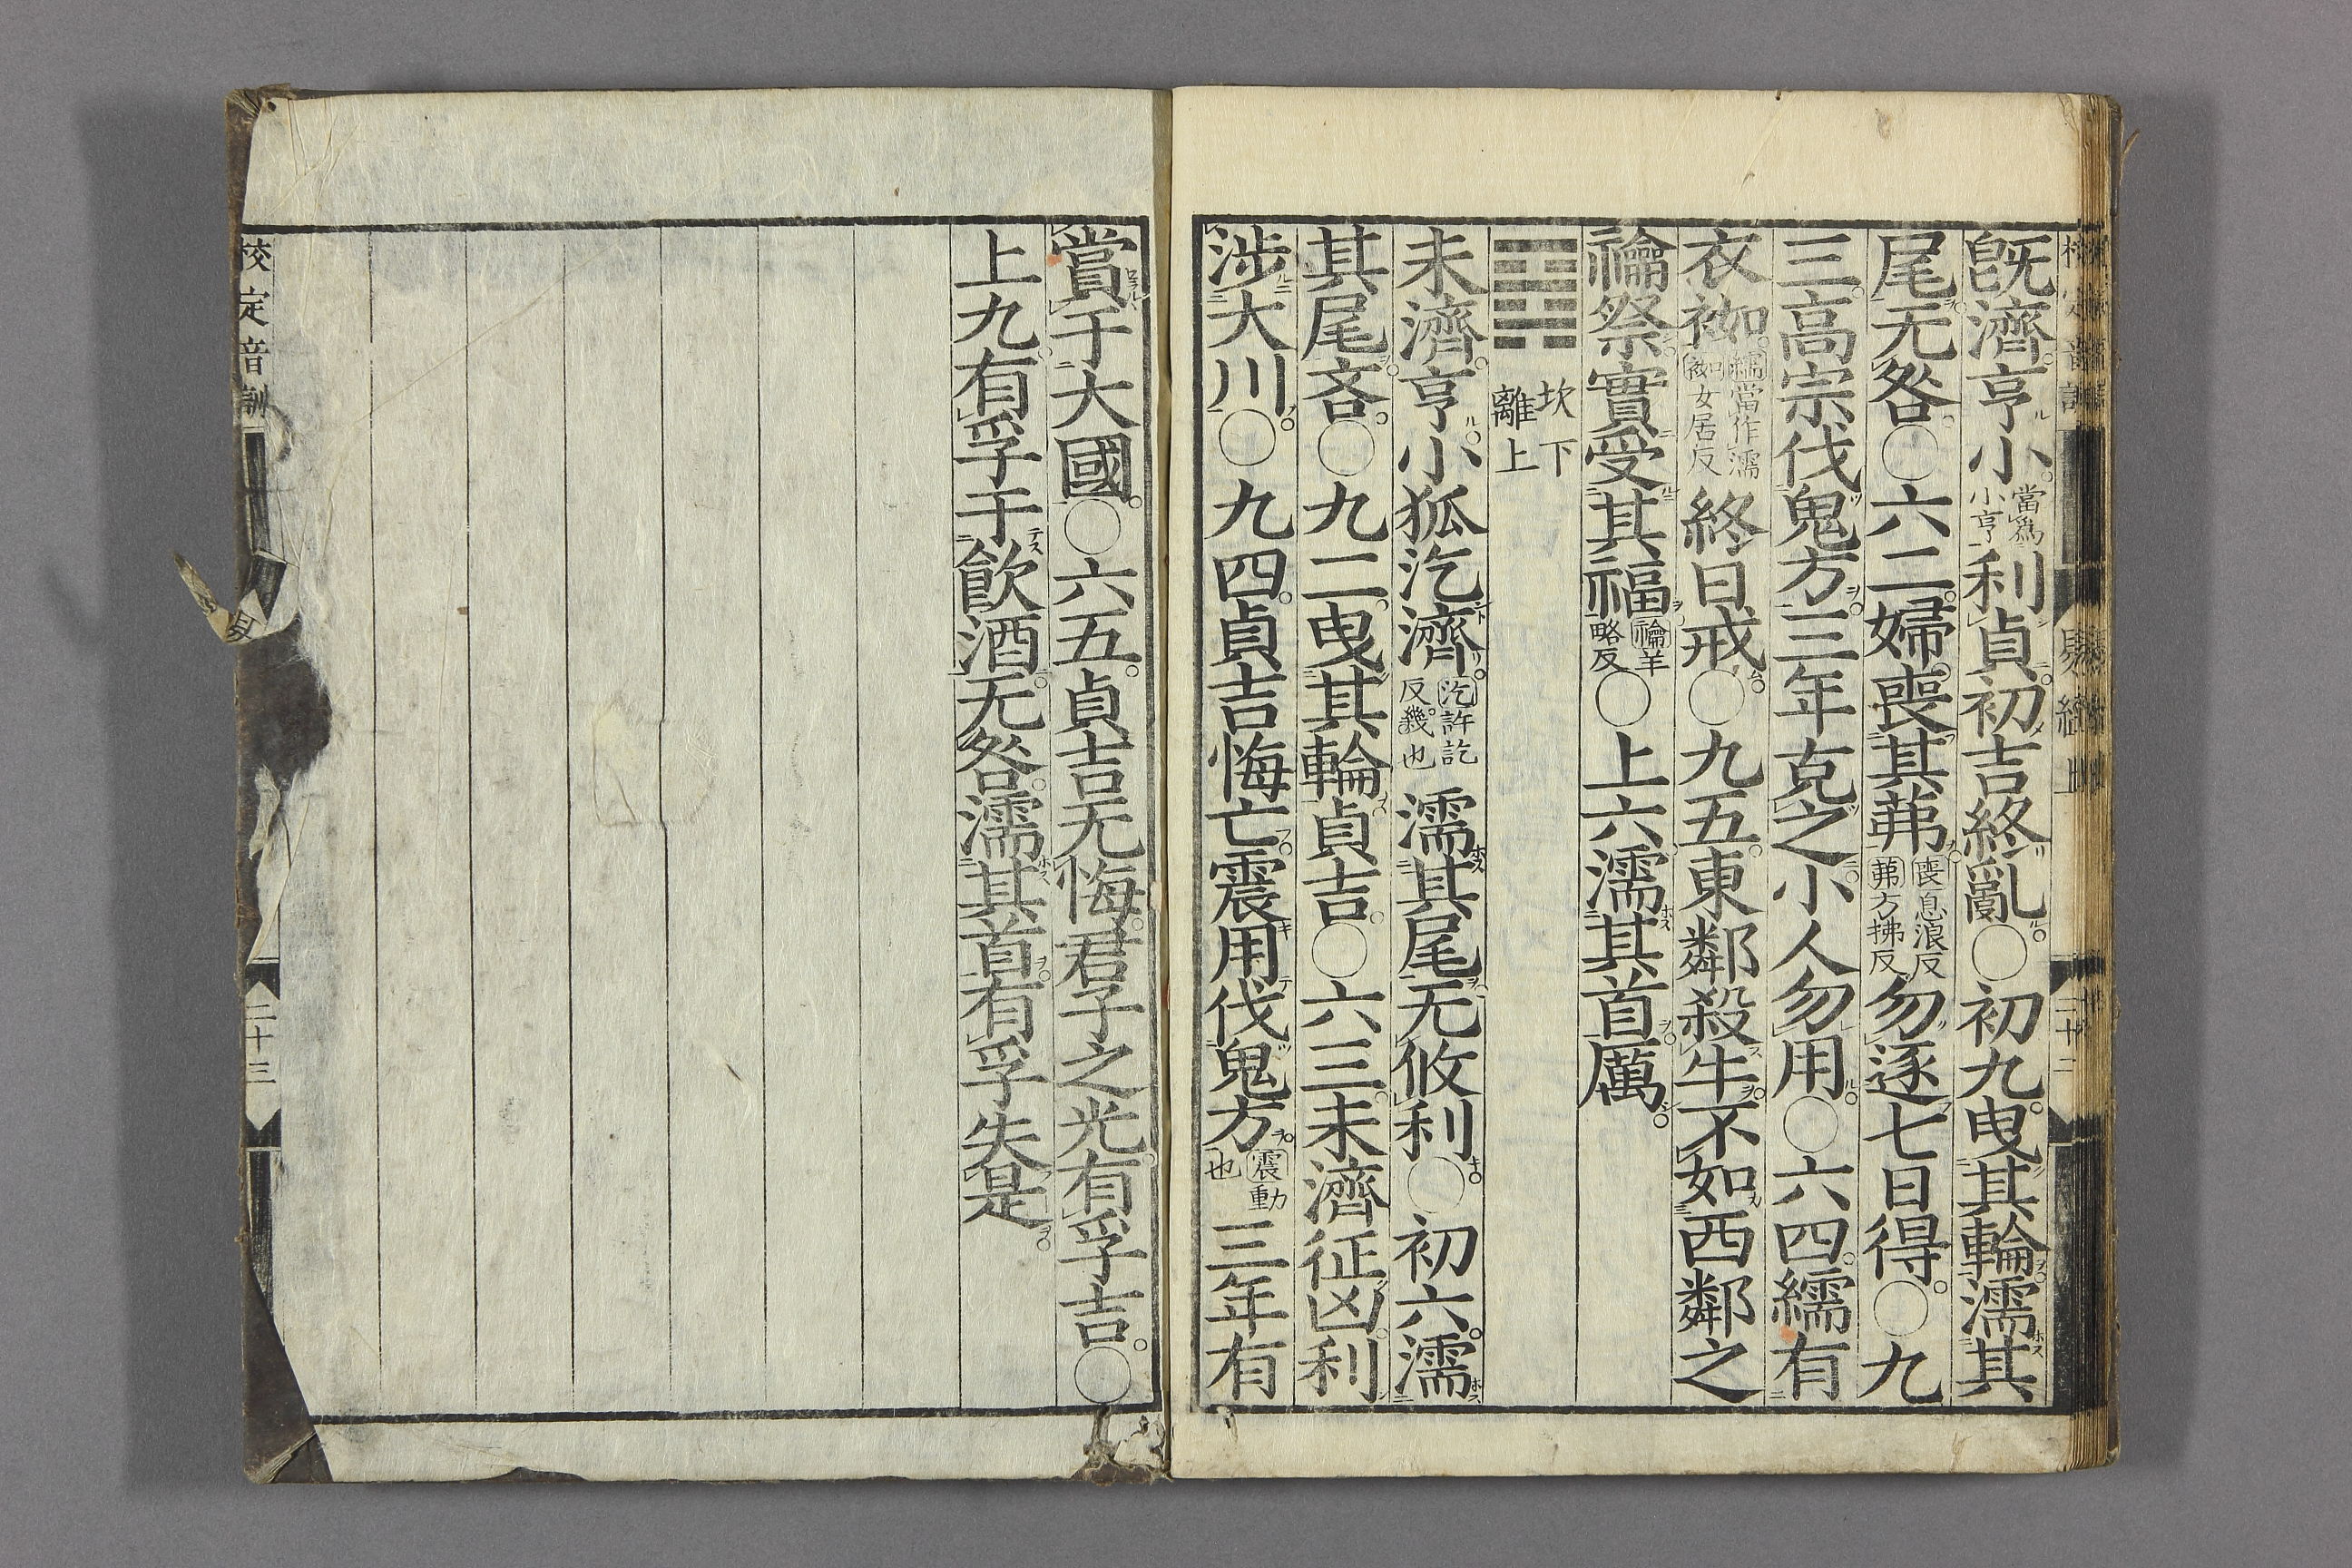 既濟亨小當爲小亨利貞初吉終亂〇初九曳其輪濡其
尾无咎〇六二婦喪其茀喪息浪反茀方拂反勿逐七日得〇九
三高宗伐鬼方三年克之小人勿用〇六四繻有
衣袽繻當作濡袽女居反終日戒〇九五東鄰殺牛不如西鄰之
禴祭實受其福禴羊略反〇上六濡其首厲
坎下離上
未濟亨小狐汔濟汔許訖反幾也濡其尾无攸利〇初六濡
其尾吝〇九二曳其輪貞吉〇六三未濟征凶利
涉大川〇九四貞吉悔亡震用伐鬼方震動也三年有
賞于大國〇六五貞吉无悔君子之光有孚吉〇
上九有孚于飮酒无咎濡其首有孚失是
校定音訓
二十三